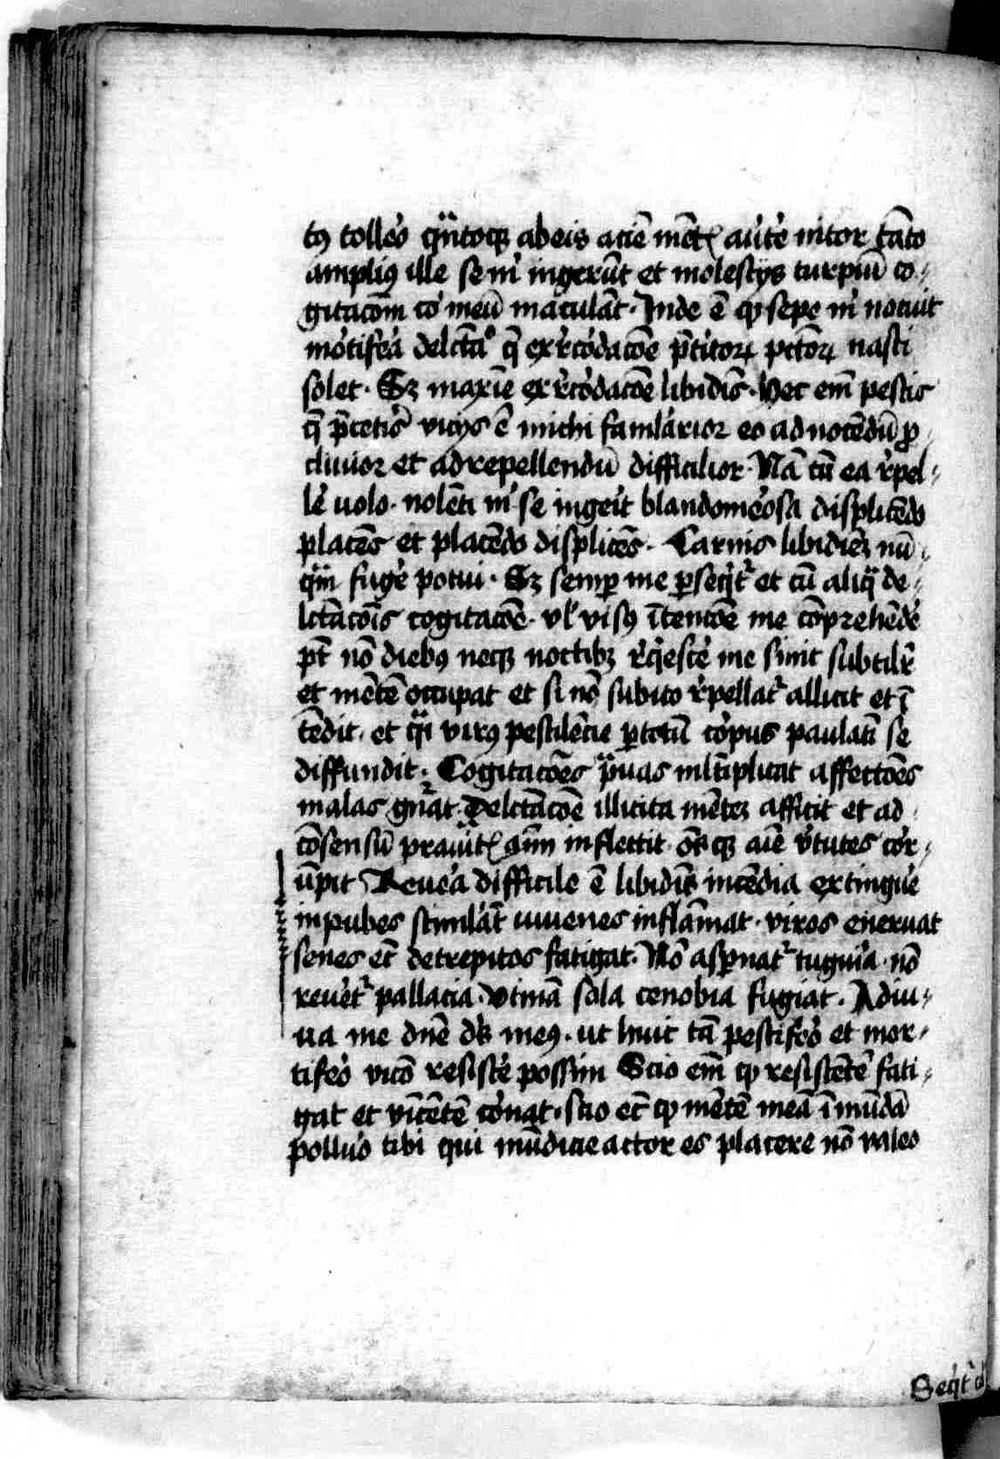 tꝯ tolleo qⁿtoqꝫ ab eis aciē mētꝭ au̾te̾ nitor tāto
ampliꝯ ille se m̾ ingerūt et molestijs turpiū co-
gitacōm co̾ meū maculāt. Inde ē qꝫ sepe m̾ nocuit
mo̾tife̾a delctāo q̄ ex r̾co̾dacōe p̄titoꝝ pctōꝝ nasci
solet. Sꝫ maxīe ex r̾co̾dacōe libidīs. Hec em̄ pestis
q̄ p̄ cete̾is vicijs ē michi familiarior eo ad nocēdū ꝓ-
cliuior et ad repellendū difficilior. Nā cū ea r̾pel-
le̾ uolo. nolēti m̾ se inge̾it blando mo̾sa displicēdo
placēs et placēdo displicēs. Carnis libidīeꝫ nū-
qⁿ fuge̾ potui. Sꝫ semꝑ me ꝑseqt̾ et cū aliq̄ de-
lctacōis cogitacōe. vl̾ visꝯ ītencōe me cōprehēde̾
pt̄ nō diebꝯ neqꝫ noctibꝫ r̾qesce̾ me sinit subtilr̾
et mētē occupat et si nō subito r̾pellat̾ allicit et ī-
cēdit. et qⁱ virꝯ pestilēcie ꝑ totū co̾pus paulati se
diffundit. Cogitacōes pͣuas mltiplicat affectōes
malas gn̄at. Delctacōe illicita mēteꝫ afficit et ad
cōsensū prauitꝭ aīm inflectit. oēsqꝫ aīe v̾tutes cor-
ūpit Reue̾a difficile ē libidīs incēdia extingue̾
inpubes stimlāt iuuenes inflāmat. viros eneruat
senes et̄ decrepitos fatigat. Nō asꝑnat̾ tuguria. nō
reue̾t̾ pallacia. Vtinā sola cenobia fugiat. Adiu-
ua me dn̄e dꝭ meꝯ. ut huic tā pestife̾o et mor-
tife̾o vicō resiste̾ possim Scio em̄ qꝫ resistētē fati-
gat et vīcētē co̾nat. scio et̄ qꝫ mētē meā īmūdā
polluo tibi qui mūdicie actor es placere nō valeo
Seqt̾